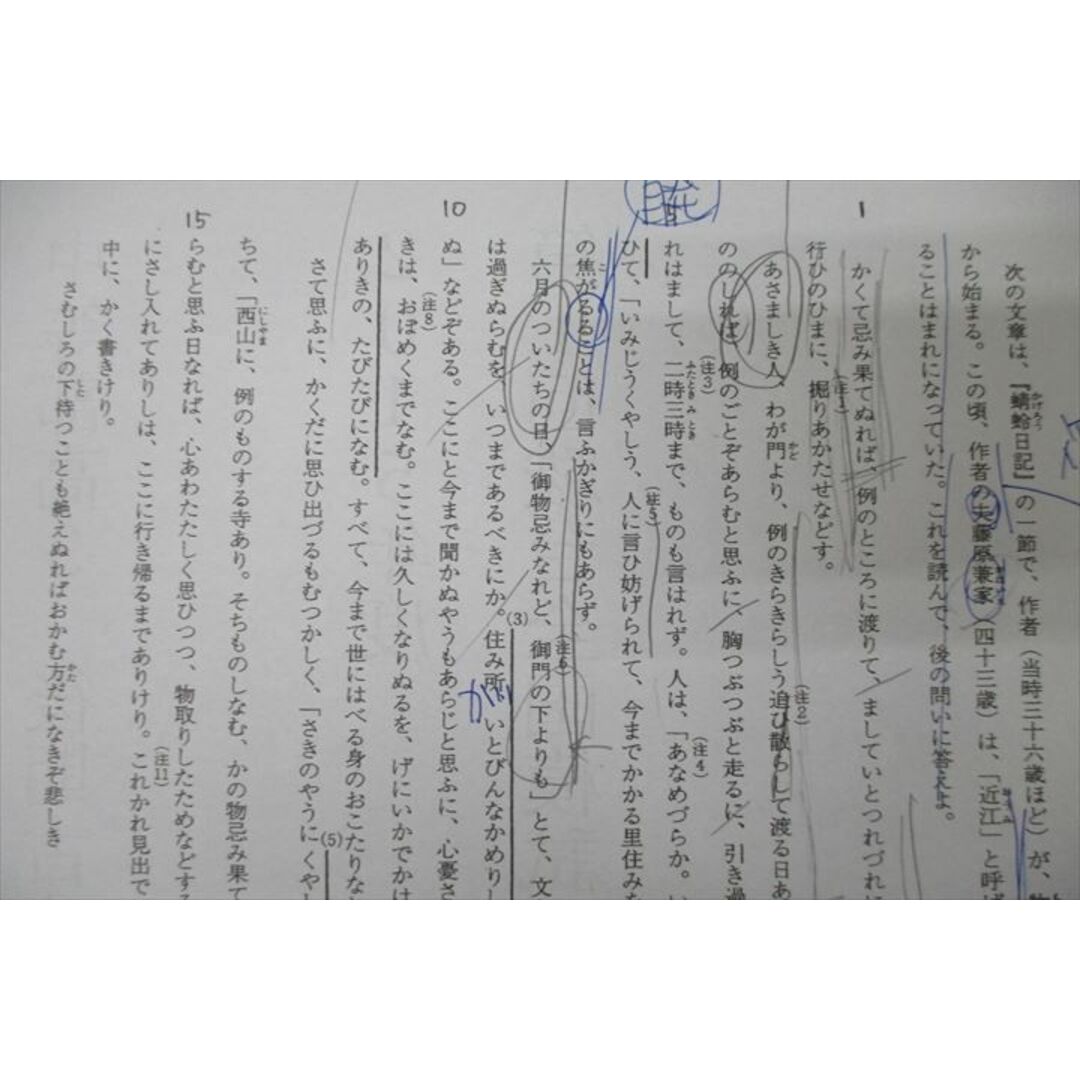 次の文章は、『蜻蛉日記』の一節で、作者(当時三十六歳ほど)が、
から始まる。この頃、作者の夫藤原兼家(四十三歳)は、「近江」と呼ば
ることはまれになっていた。これを読んで、後の問いに答えよ。
1
かくて忌み果てぬれば、例のところに渡りて、ましていとつれづれに
行ひのひまに、掘りあかたせなどす。
(注1)
あさましき人、わが門より、例のきらきらしう追ひ散らして渡る日あ
(注2)
ののしれば、例のごとぞあらむと思ふに、胸つぶつぶと走るに、引き過
(注3)
れはまして、二時三時まで、ものも言はれず。人は、「あなめづらか。い
(注4)
ひて、「いみじうくやしう、人に言ひ妨げられて、今までかかる里住みを
(注5)
の焦がるることは、言ふかぎりにもあらず。
六月のついたちの日、「御物忌みなれど、御門の下よりも」とて、文
(注6)
は過ぎぬらむを、いつまであるべきにか。住み所、いとびんなかめりし
(3)
が
10
ぬ」などぞある。ここにと今まで聞かぬやうもあらじと思ふに、心憂さ
(注8)
きは、おぼめくまでなむ。ここには久しくなりぬるを、げにいかでかは
ありきの、たびたびになむ。すべて、今まで世にはべる身のおこたりな
さて思ふに、かくだに思ひ出づるもむつかしく、「さきのやうにくや
(5)
ちて、「西山に、例のものする寺あり。そちものしなむ、かの物忌み果て
15
らむと思ふ日なれば、心あわたたしく思ひつつ、物取りしたためなどす
(注11)
にさし入れてありしは、ここに行き帰るまでありけり。これかれ見出で
中に、かく書きけり。
さむしろの下待つことも絶えぬればおかむ方だになきぞ悲しき